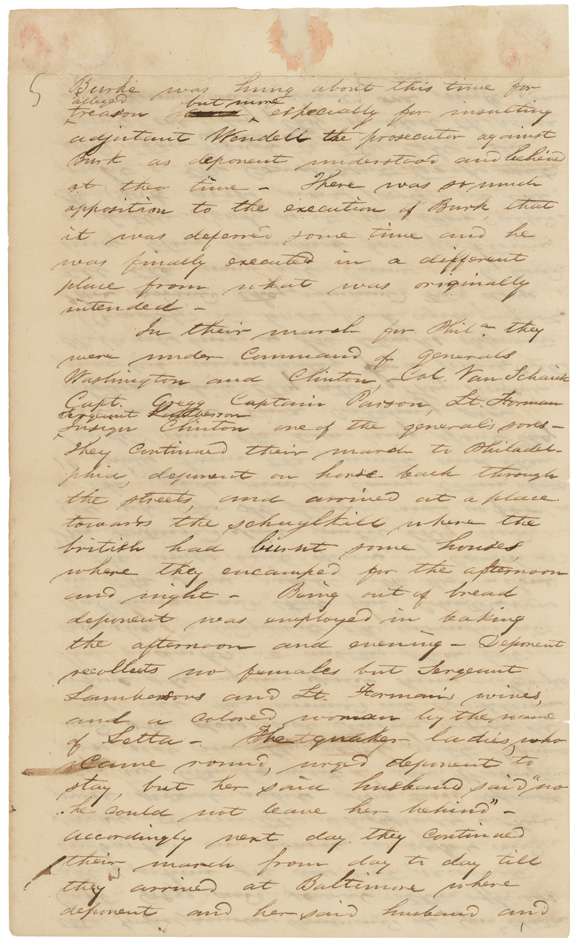 5
Burke was hung about this time for
alleged but more
treason especially for insulting
adjutant Wendell the prosecutor against
Burk as deponent understood and believed
at the time – There was so much
opposition to the execution of Burk that
it was deferred some time and he
was finally executed in a different
place from what was originally
intended –
In their march for Phila. they
were under command of generals
Washington and Clinton, Col. Van Schaick
Capt. Gregg Captain Parson, Lt. Forman
Sergeant Lamberson
Insign Clinton one of the generals sons –
They continued their march to Philadel-
phia, deponent on horse back through
the streets, and arrived at a place
towards the Schuylkill where the
british had burnt some houses,
where they encamped for the afternoon
and night – Being out of bread
deponent was employed in baking
the afternoon and evening – Deponent
recollects no females but Sergeant
Lambersons and Lt. Forman's wives,
and a colored woman by the name
of Letta – The quaker ladies, who
came round, urged deponent to
stay, but her said husband said "no
he could not leave her behind" –
Accordingly next day they continued
their march from day to day till
they arrived at Baltimore where
deponent and her said husband and